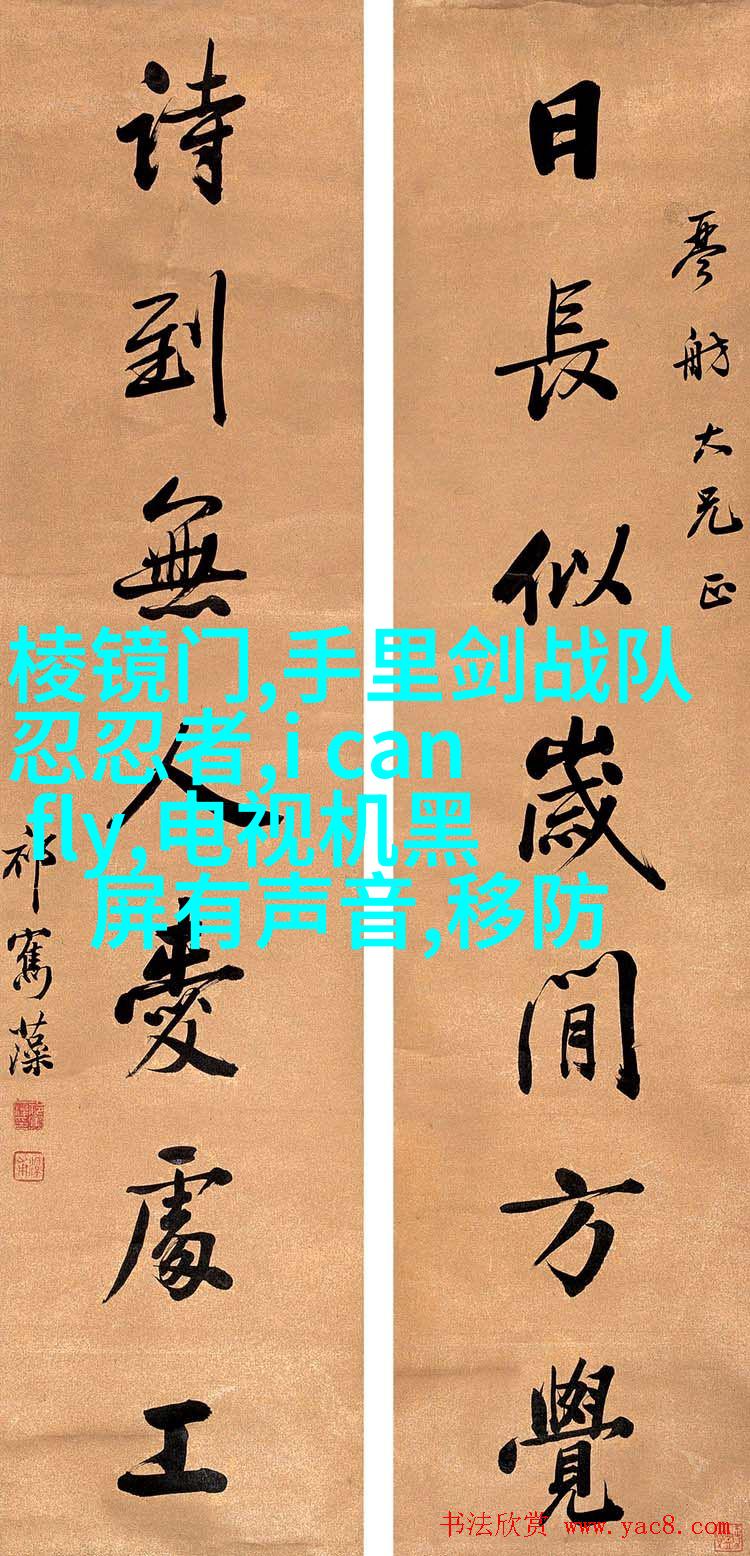 日長似歲閒方覺
琴舫大兄正
詩到無人愛處工
祁寯藻
棱镜门,手里剑战队
忍忍者,i can
fly,电视机黑
屏有声音,移防
书法欣赏 www.yac8.com